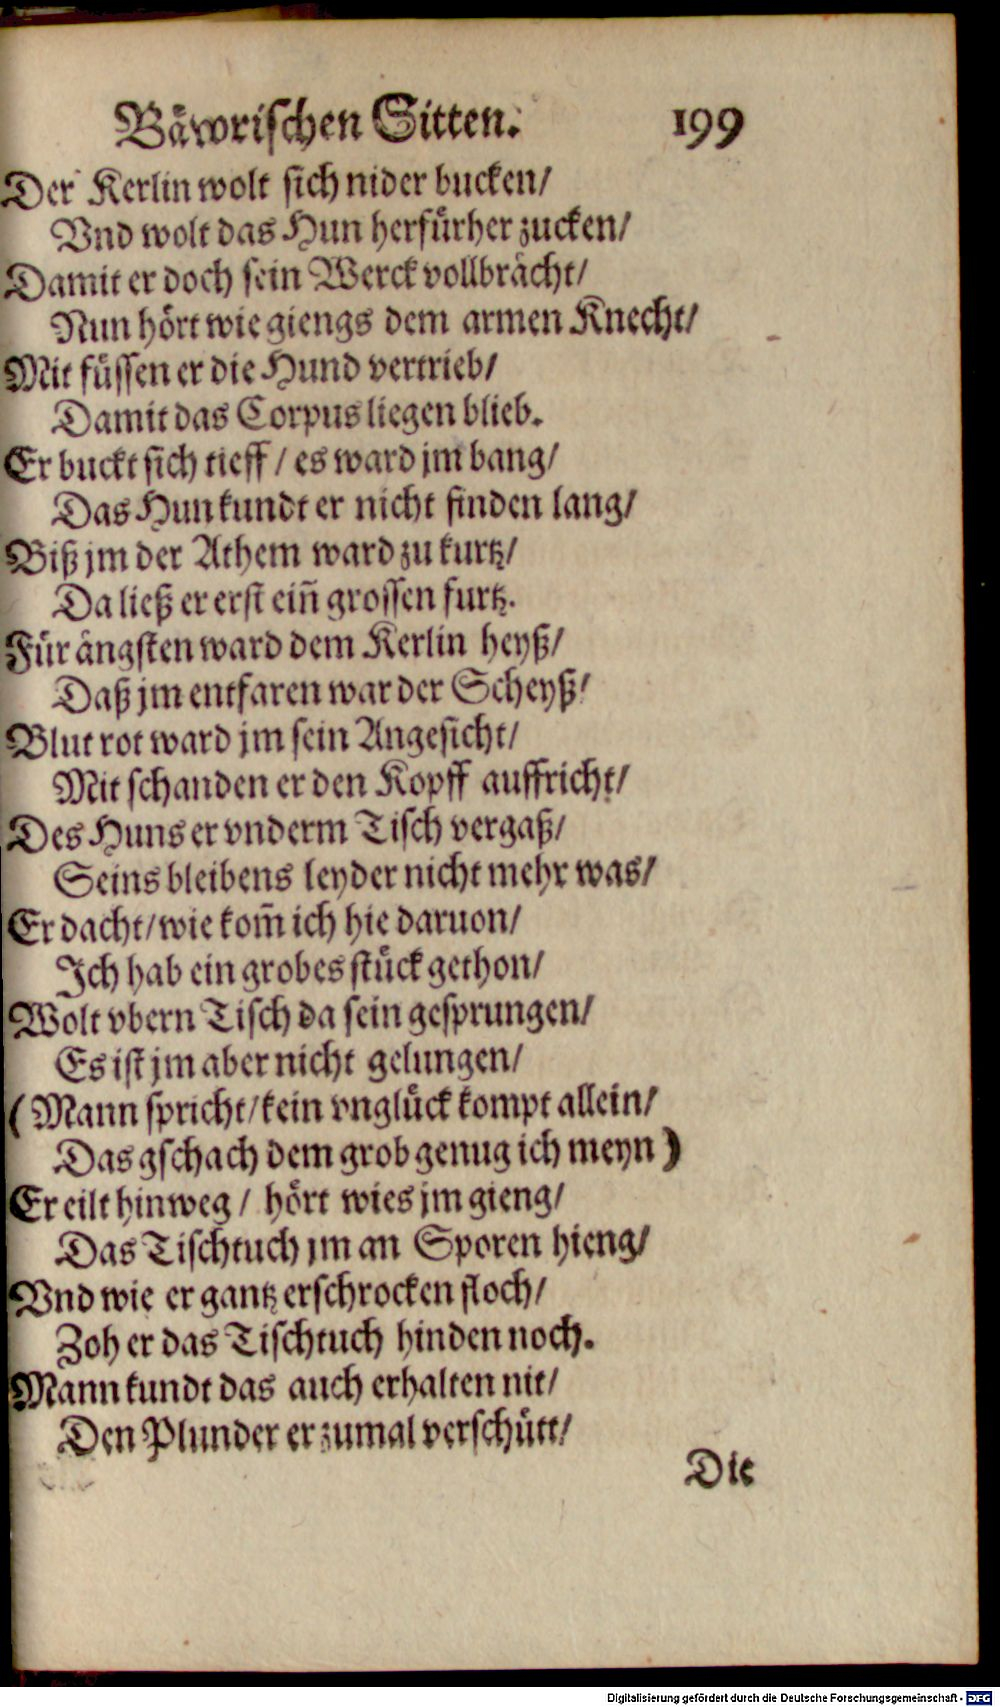 Bäwrischen Sitten. 199
Der Kerlin wolt sich nider bucken/
Vnd wolt das Hun herfürher zucken/
Damit er doch sein Werck vollbrächt/
Nun hört wie giengs dem armen Knecht/
Mit füssen er die Hund vertrieb/
Damit das Corpus liegen blieb.
Er buckt sich tieff / es ward jm bang/
Das Hun kundt er nicht finden lang/
Biß jm der Athem ward zu kurtz/
Da ließ er erst ein̄ grossen furtz.
Für ängsten ward dem Kerlin heyß/
Daß jm entfaren war der Scheyß/
Blut rot ward jm sein Angesicht/
Mit schanden er den Kopff auffricht/
Des Huns er vnderm Tisch vergaß/
Seins bleibens leyder nicht mehr was/
Er dacht/ wie kom̄ ich hie daruon/
Ich hab ein grobes stück gethon/
Wolt vbern Tisch da sein gesprungen/
Es ist jm aber nicht gelungen/
(Mann spricht/ kein vnglück kompt allein/
Das gschach dem grob genug ich meyn)
Er eilt hinweg / hört wies jm gieng/
Das Tischtuch jm an Sporen hieng/
Vnd wie er gantz erschrocken floch/
Zoh er das Tischtuch hinden noch.
Mann kundt das auch erhalten nit/
Den Plunder er zumal verschütt/
Die
Digitalisierung gefördert durch die Deutsche Forschungsgemeinschaft - DFG